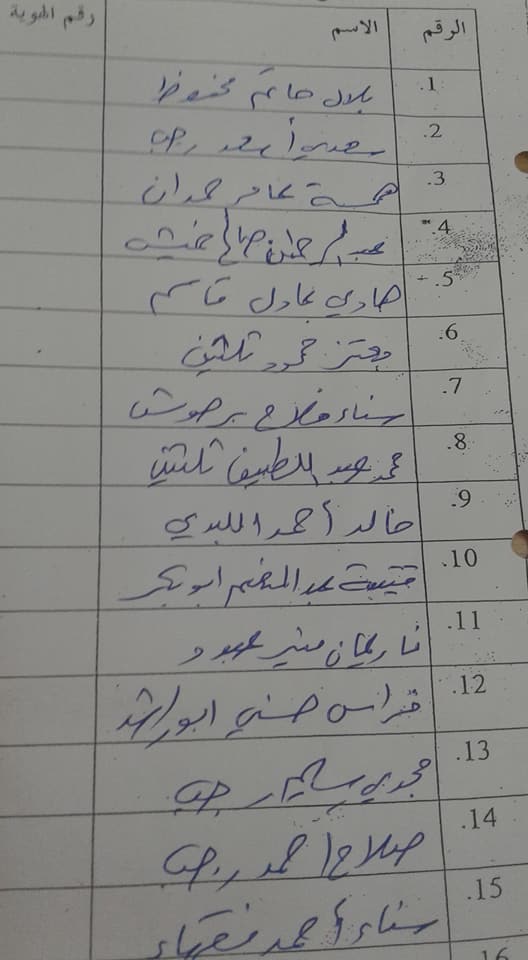 الرقم الاسم رقم الهوية
1. بلال حاتم محفوظ
2. سعدي أسعد رجب
3. همسة عامر حمدان
4. عبد الرحمن صالح
5. هادي عادل قاسم
6. معتز حمود ثلثين
7. سناء فلاح برهوش
8. محمد عبد اللطيف ثلثين
9. خالد أحمد اللبدي
10. قتيبة عبد المنعم ابو بكر
11. ناريمان منير عبود
12. فراس حسني ابو راشد
13. مجدي سليم رجب
14. صلاح أحمد رجب
15. سناء أحمد فقهاء
16